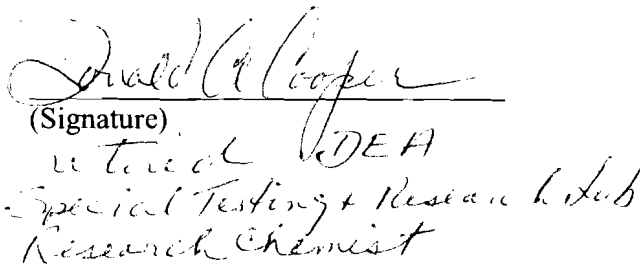 Donald A Cooper
(Signature)
retired DEA
Special Testing & Research Lab
Research Chemist